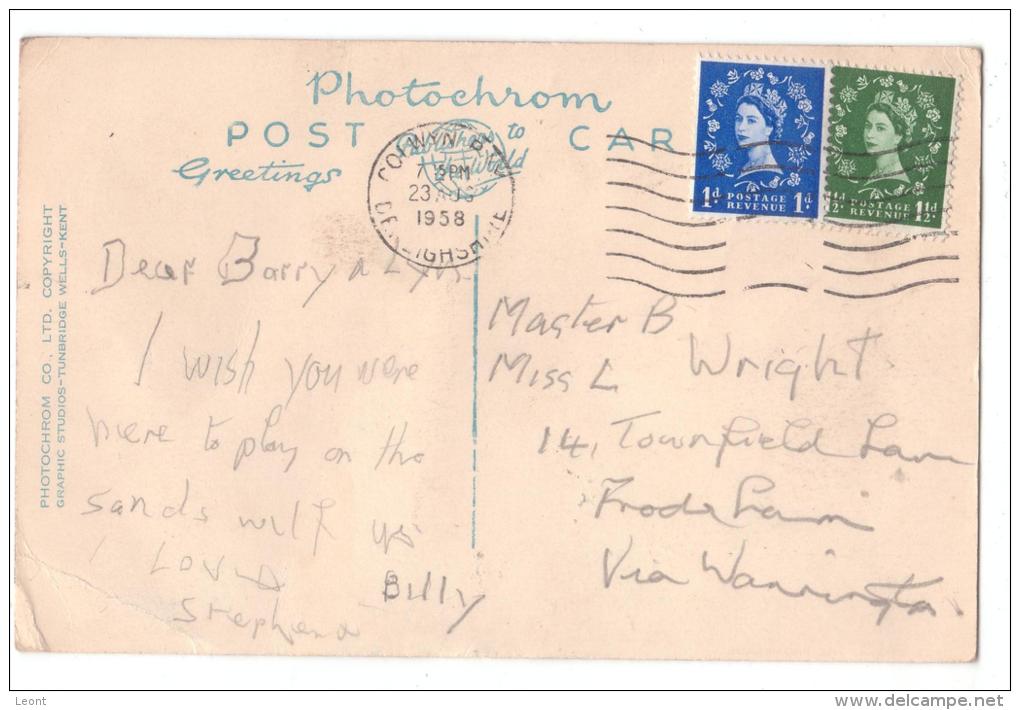 Photochrom
POST CAR
Publishers to
Greetings
the World
COLWYN BAY
PM
23 AUG
1958
DENBIGHSHIRE
1d POSTAGE REVENUE 1d
1½d POSTAGE REVENUE 1½d
PHOTOCHROM CO., LTD. COPYRIGHT
GRAPHIC STUDIOS-TUNBRIDGE WELLS-KENT
Dear Barry &
I wish you were
here to play on the
sands with us
Love
Stephen
Billy
Master B
Miss L Wright
14, Townfield Lane
Frodsham
Via Warrington.
Leont
delcampe.net